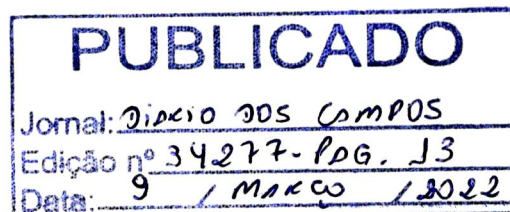 PUBLICADO
Jornal: DIÁRIO DOS CAMPOS
Edição nº 34277 - PAG. 13
Data: 9 / MARÇO / 2022